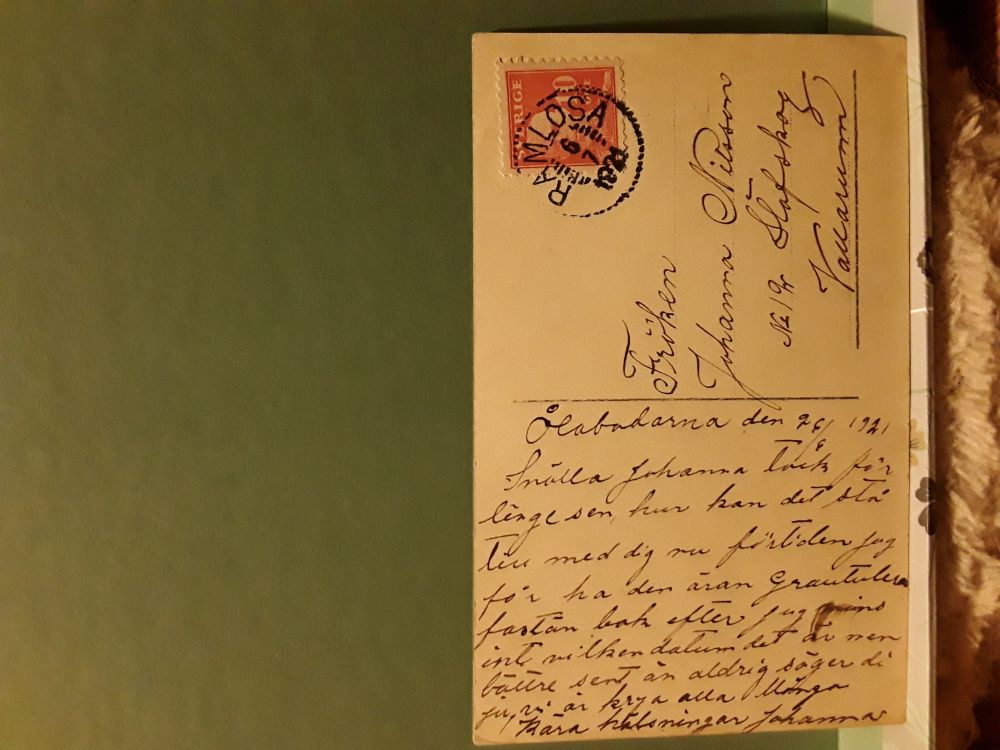 SVERIGE
RAMLÖSA
Fröken
Johanna Nilsson
No 19 Släfskog
Vallarum
Ålabodarna den 29/6 1921
Snälla Johanna tack för
länge sen, hur kan det stå
till med dig nu förtiden jag
får ha den äran Grautulera
fastän bak efter jag mins
inte vilken datum det är men
bättre sent än aldrig säger di
ju, vi är krya alla Många
Kära hälsningar Johanna